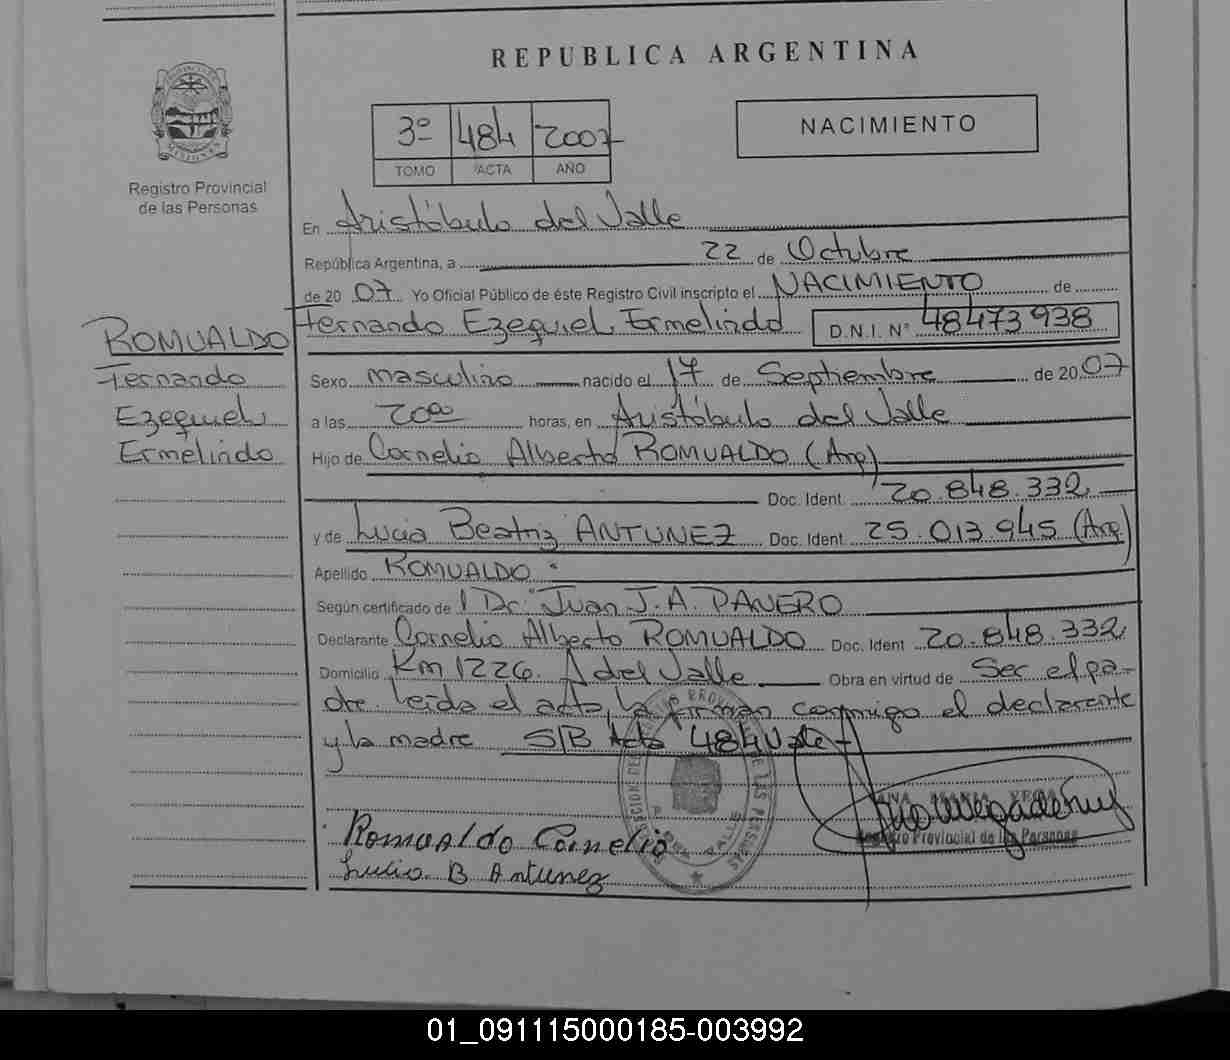 REPUBLICA ARGENTINA
PROVINCIA DE MISIONES
Registro Provincial
de las Personas
3º 484 2007
TOMO ACTA AÑO
NACIMIENTO
En Aristóbulo del Valle
República Argentina, a 22 de Octubre
de 20 07 Yo Oficial Público de éste Registro Civil inscripto el NACIMIENTO de
Fernando Ezequiel Ermelindo D.N.I. Nº 48473938
ROMUALDO
Fernando
Ezequiel
Ermelindo
Sexo masculino nacido el 17 de Septiembre de 20 07
a las 20⁰⁰ horas, en Aristóbulo del Valle
Hijo de Cornelio Alberto ROMUALDO (Arg)
Doc. Ident. 20.848.332
y de Lucia Beatriz ANTUNEZ Doc. Ident. 25.013.945 (Arg)
Apellido ROMUALDO
Según certificado de Dr. Juan J. A. PANERO
Declarante Cornelio Alberto ROMUALDO Doc. Ident 20.848.332
Domicilio Km 1226. A del Valle Obra en virtud de Ser el pa-
dre. Leída el acta, la firman conmigo el declarante
y la madre S/B Acta 484 Vale
Romualdo Cornelio
Lucia B Antunez
Registro Provincial de las Personas
01_091115000185-003992